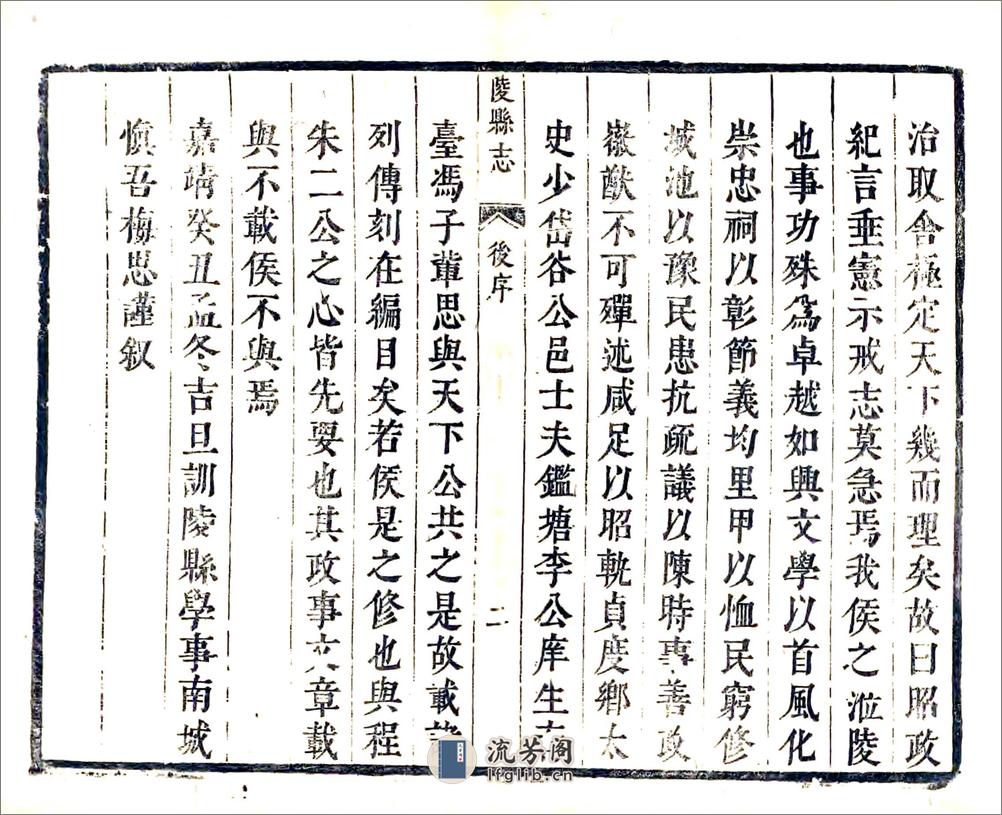 治取舍極定天下幾而理矣故曰昭政
紀言垂憲示戒志莫急焉我侯之涖陵
也事功殊為卓越如興文學以首風化
崇忠祠以彰節義均里甲以恤民窮修
城池以豫民患抗疏議以陳時事善政
徽猷不可殫述咸足以昭軌貞度鄉太
史少岱谷公邑士夫鑑塘李公庠生
陵縣志
後序
二
臺馮子輩思與天下公共之是故載
列傳刻在編目矣若侯是之修也與程
朱二公之心皆先要也其政事文章載
與不載侯不與焉
嘉靖癸丑孟冬吉旦訓陵縣學事南城
慎吾梅思謹叙
流芳阁
lfglib.cn